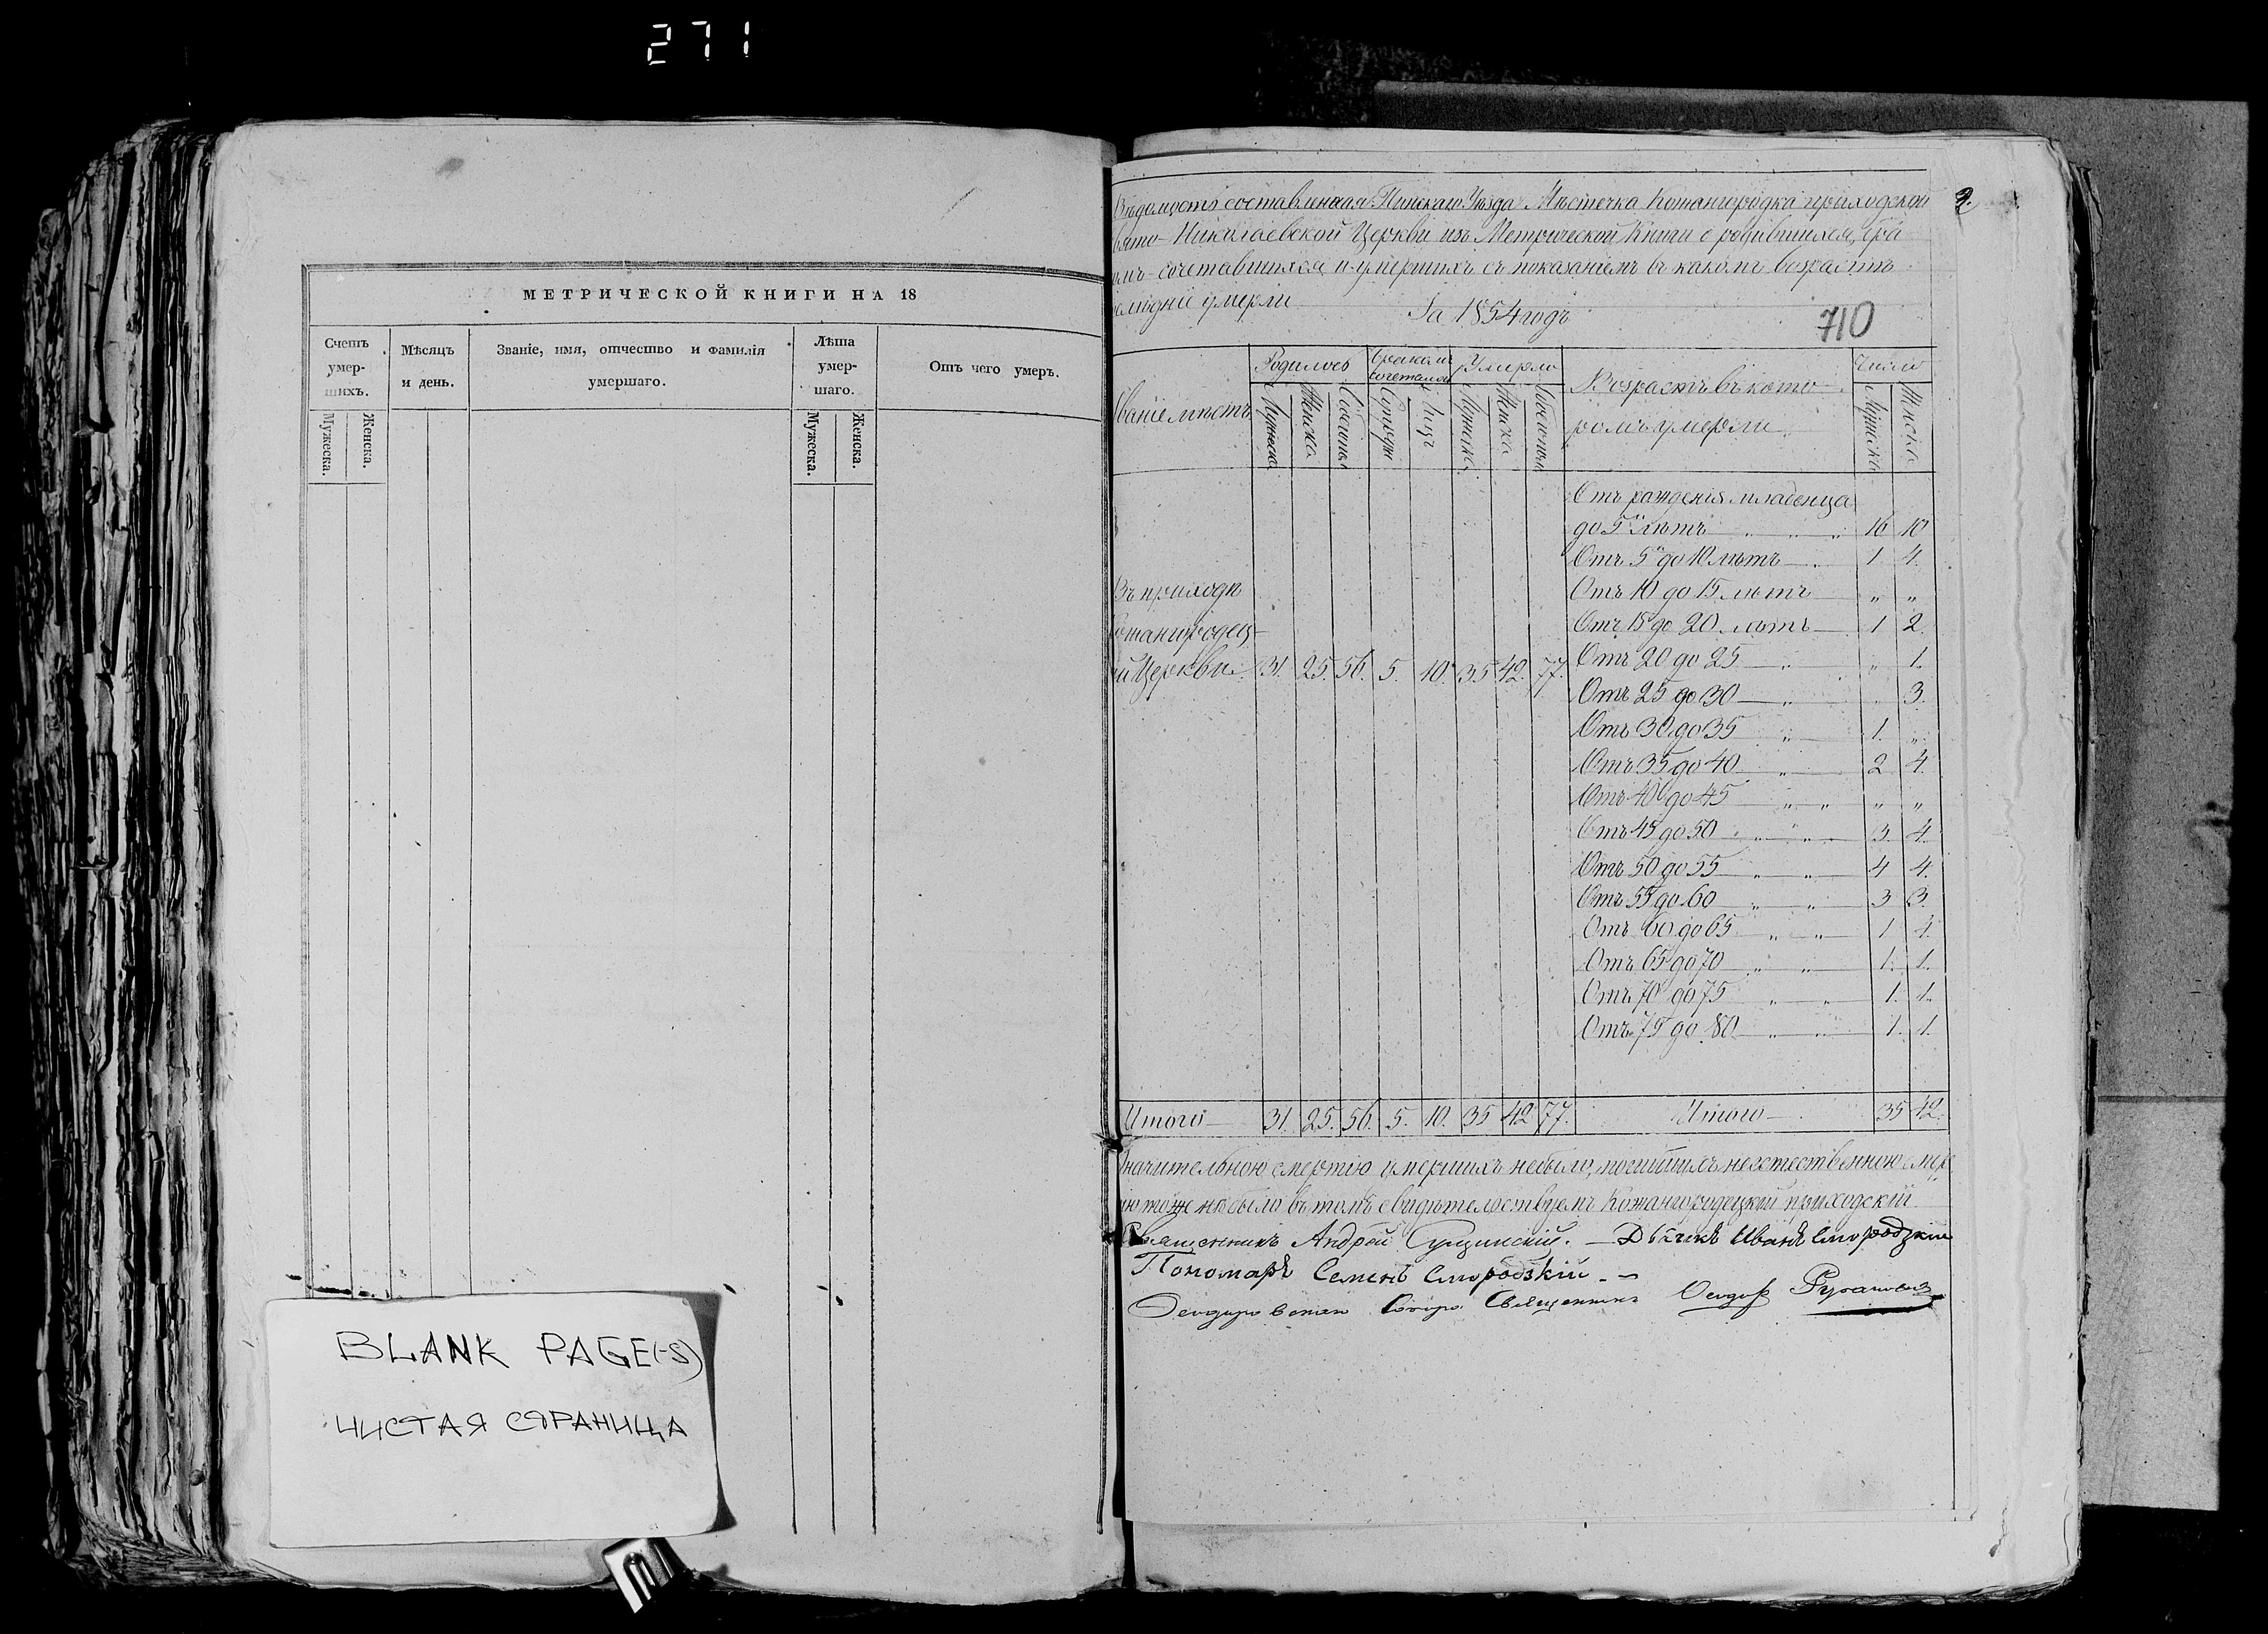 271
МЕТРИЧЕСКОЙ КНИГИ НА 18
Счетъ умер-шихъ.
Мужеска.
Женска.
Мѣсяцъ и день.
Званіе, имя, отчество и фамилія умершаго.
Лѣта умер-шаго.
Мужеска.
Женска.
Отъ чего умеръ.
BLANK PAGE(-S)
ЧИСТАЯ СТРАНИЦА
Вѣдомость составленная Пинскаго Уѣзда Мѣстечка Кожангородка приходской
вято-Николаевской Церкви изъ Метрической Книги о родившихся, бра
омъ-сочетавшихся и умершихъ съ показаніемъ въ какомъ возрастѣ
умерли
За 1854 годъ
710
Родилось
Мужеска
Женска
Обоегополу
Бракомъ сочеталось
Супруж
Лицъ
Умерло
Мужеска
Женска
Обоегополу
Возрастъ въ кото
ромъ умерли
Число
Мужеска
Женска
званіе мѣстъ
Отъ рожденія младенца
до 5 лѣтъ 16 10
Отъ 5 до 10 лѣтъ 1. 4.
Отъ 10 до 15 лѣтъ „ „
Отъ 15 до 20 лѣтъ 1 2.
Отъ 20 до 25 „ „ 1.
Отъ 25 до 30 „ „ 3.
Отъ 30 до 35 „ 1. „
Отъ 35 до 40 „ 2. 4.
Отъ 40 до 45 „ „ „ „
Отъ 45 до 50 „ „ 3. 4.
Отъ 50 до 55 „ „ 4 4.
Отъ 55 до 60 „ „ 3 3.
Отъ 60 до 65 „ „ 1 4.
Отъ 65 до 70 „ „ 1. 1.
Отъ 70 до 75 „ „ 1. 1.
Отъ 75 до 80 „ „ 1. 1.
Въ приходѣ
ожангородец-
ой Церкви. 31. 25. 56. 5. 10. 35 42. 77.
Итого 31. 25. 56. 5. 10. 35 42 77. Итого 35 42.
значительною смертію умершихъ небыло, погибшихъ неестественною смер
ію тоже небыло въ томъ свидѣтельствуемъ Кожангородецкій приходскій
Священникъ Андрей Сущинскій. — Дьячекъ Иванъ Смородзкій
Пономарь Семенъ Смородзкій
Священникъ Ѳеодоръ